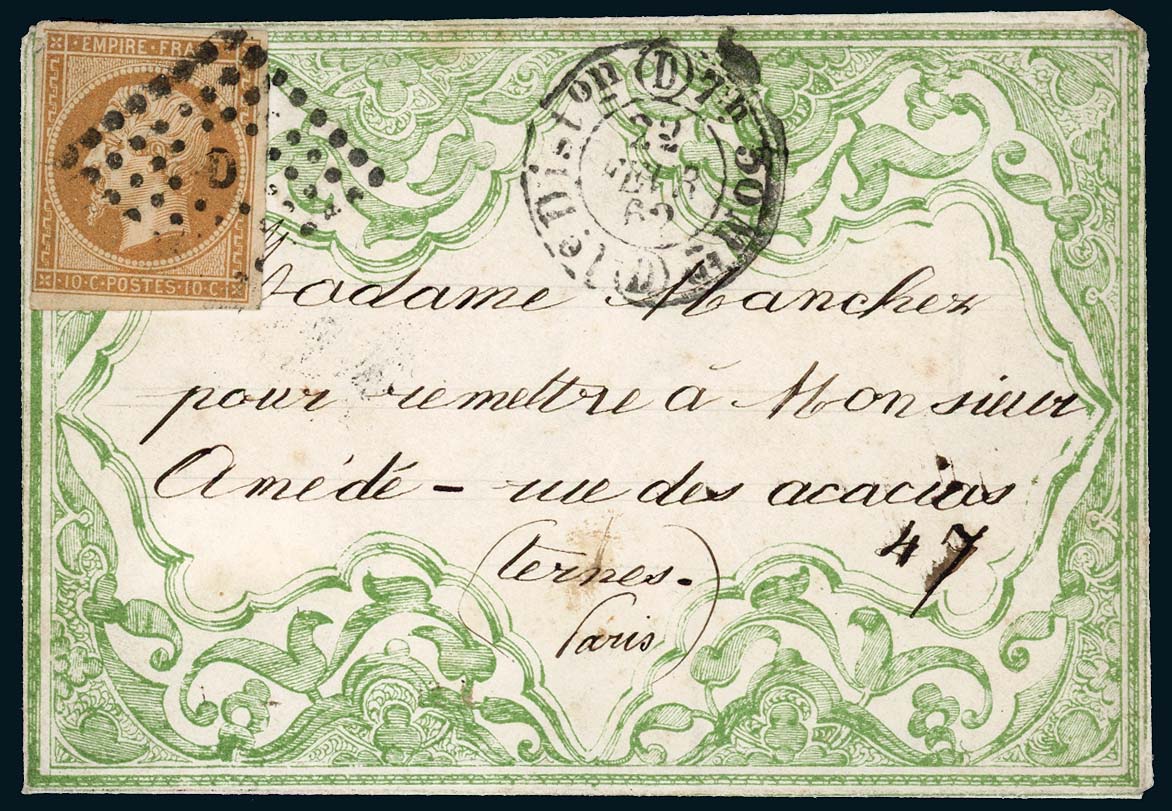 EMPIRE · FRA
D
10 · C · POSTES · 10 · C
Diston (D) 7h 30m
22
FEVR
62
(D)
Madame Manchez
pour remettre à Monsieur
Amédé - rue des acacias
47
(Ternes.
Paris)